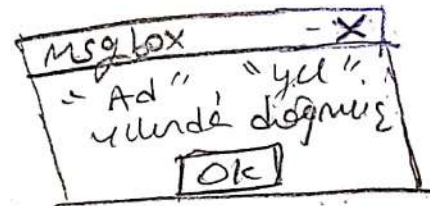 Msgbox - X
"Ad" "yıl"
yılında doğmuş
Ok